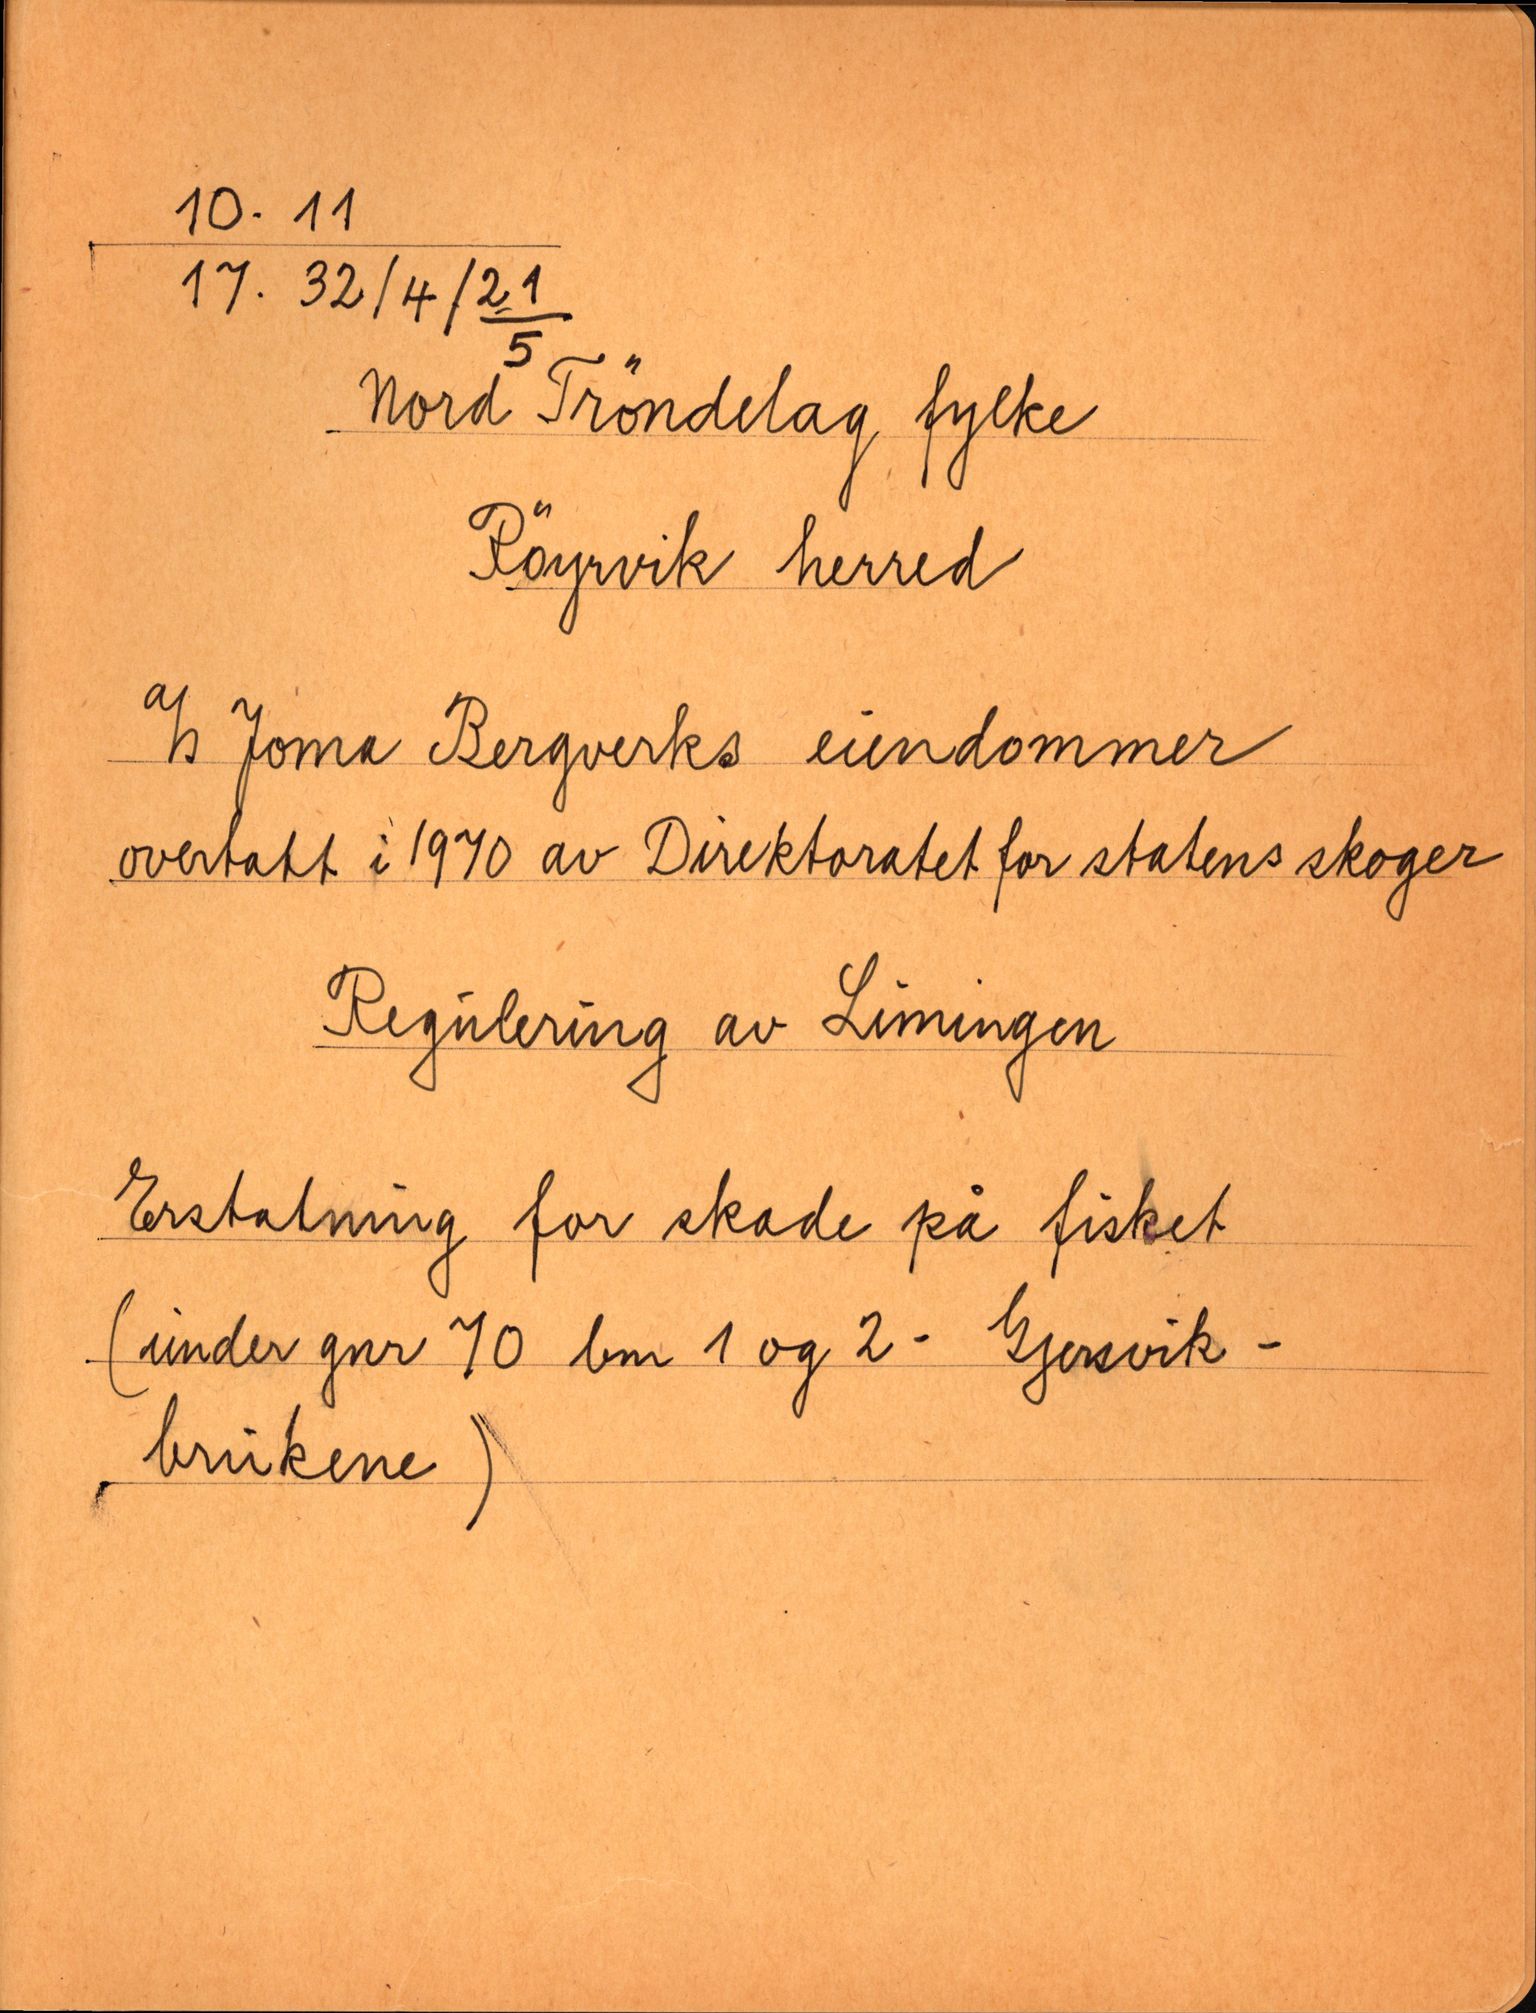 10. 11
17. 32/4/21
5
Nord Tröndelag fylke
Röyrvik herred
a/s Joma Bergverks eiendommer
overtatt i 1970 av Direktoratet for statens skoger
Regulering av Limingen
Erstatning for skade på fisket
(under gnr 70 bnr 1 og 2 - Gjersvik -
brukene)